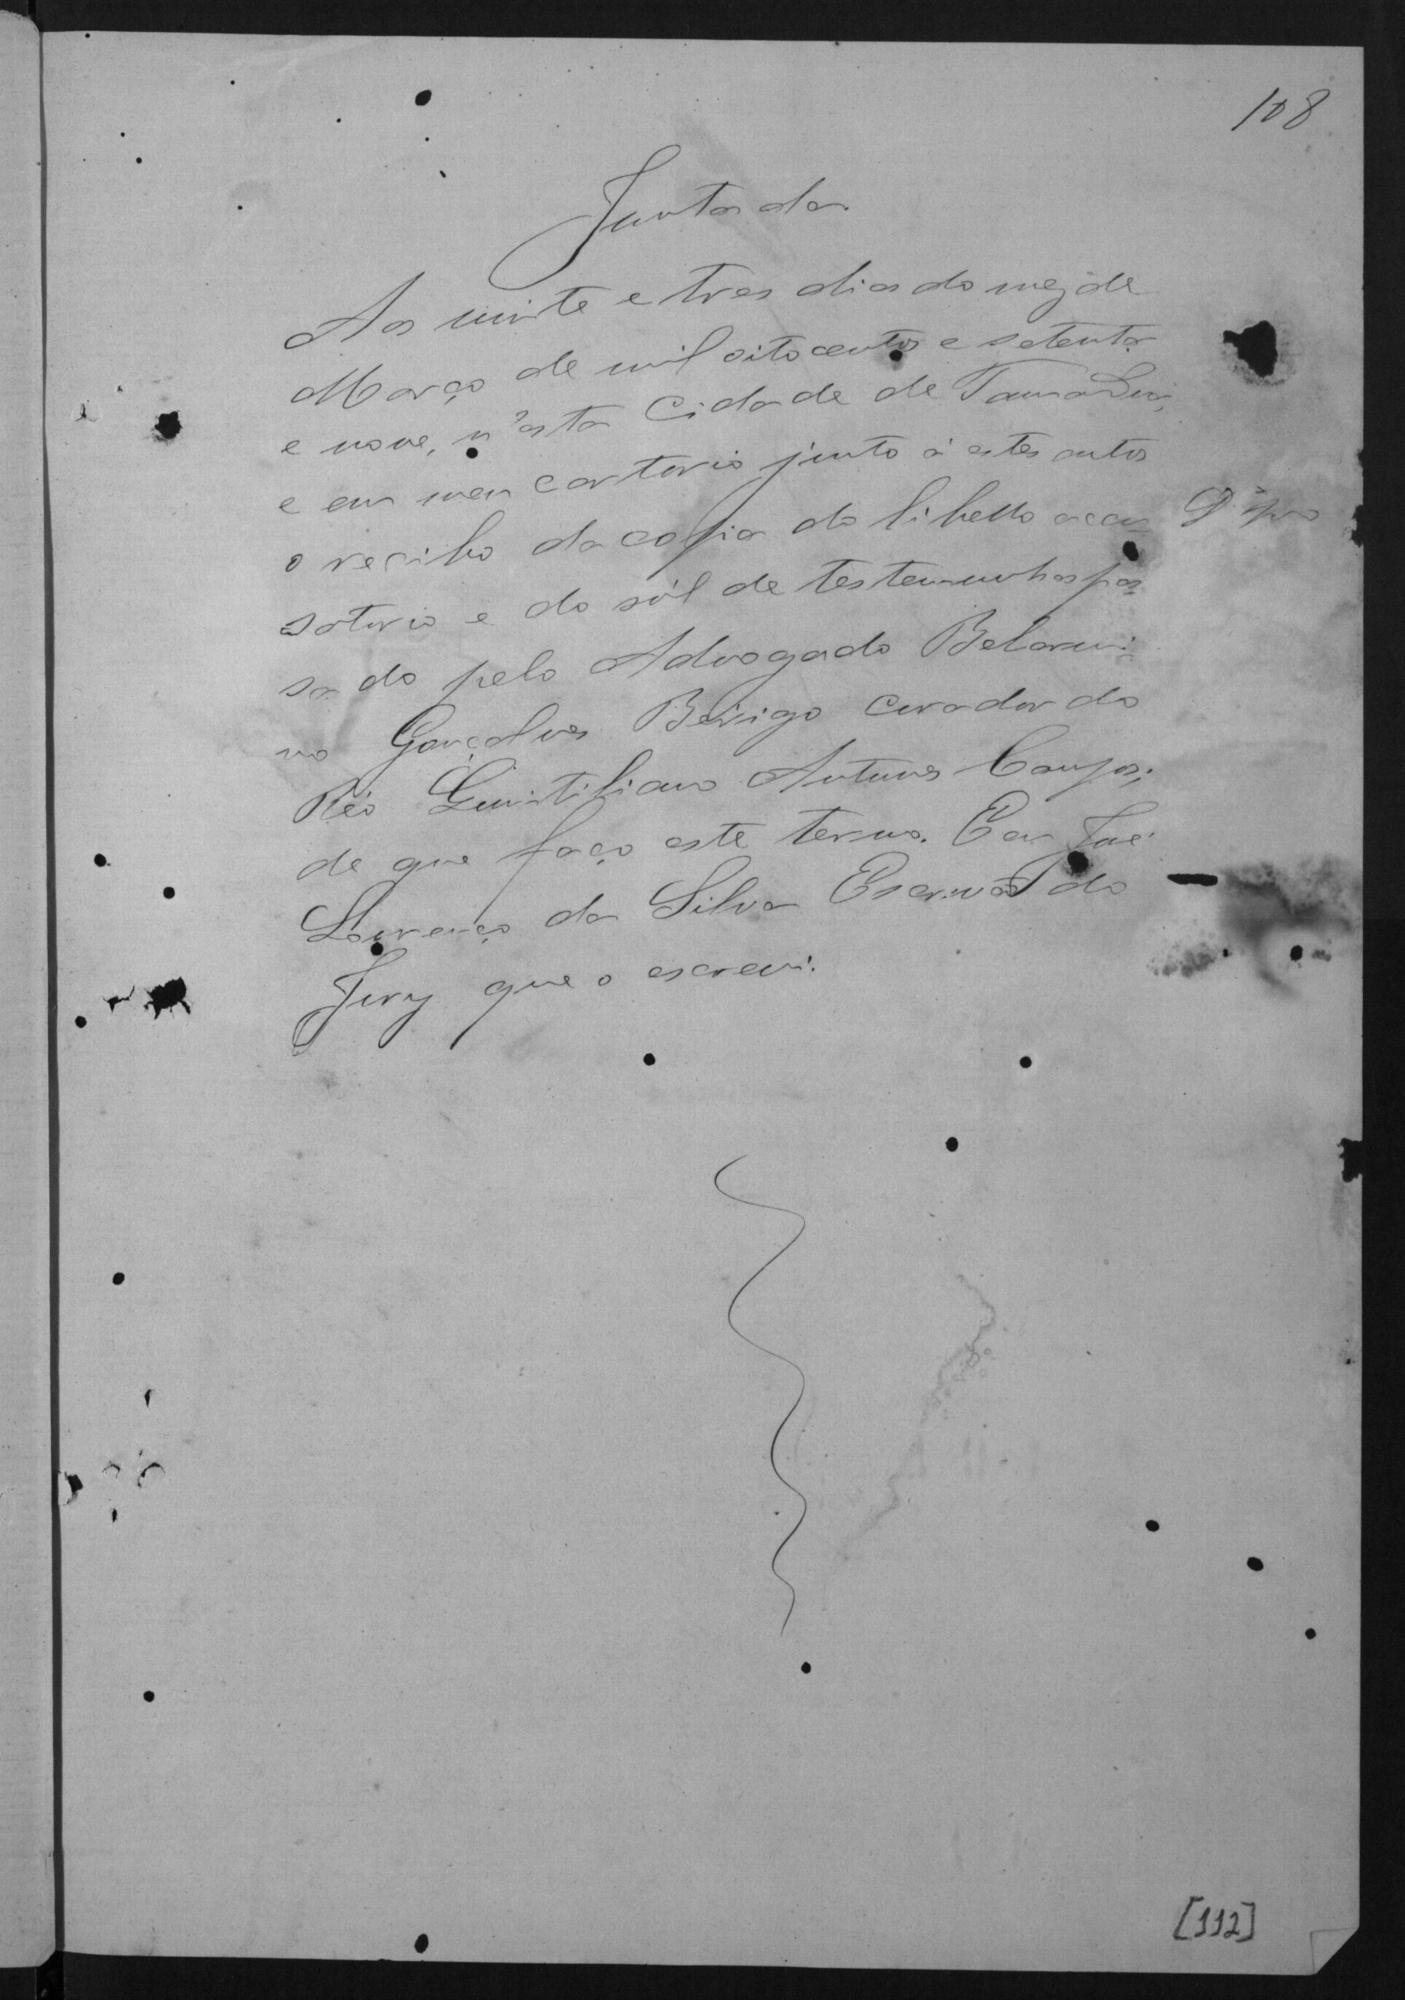 108
Juntada
Aos vinte e tres dias do mez de
Março de mil oitocentos e setenta
e nove, n'esta Cidade de Tamanduá,
e em meu cartorio junto á estes autos
o recibo da copia do libello accu
satorio e do ról de testemunhas pas
sado pelo Advogado Belarmi
no Gonçalves Berigo curador do
Réo Quintiliano Antunes Campos;
de que faço este termo. Eu José
Lourenço da Silva Escrivão do
Jury que o escrevi.
[112]